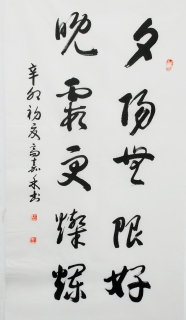 夕阳無限好
晚霞更燦爛
辛卯初夏高嘉禾书